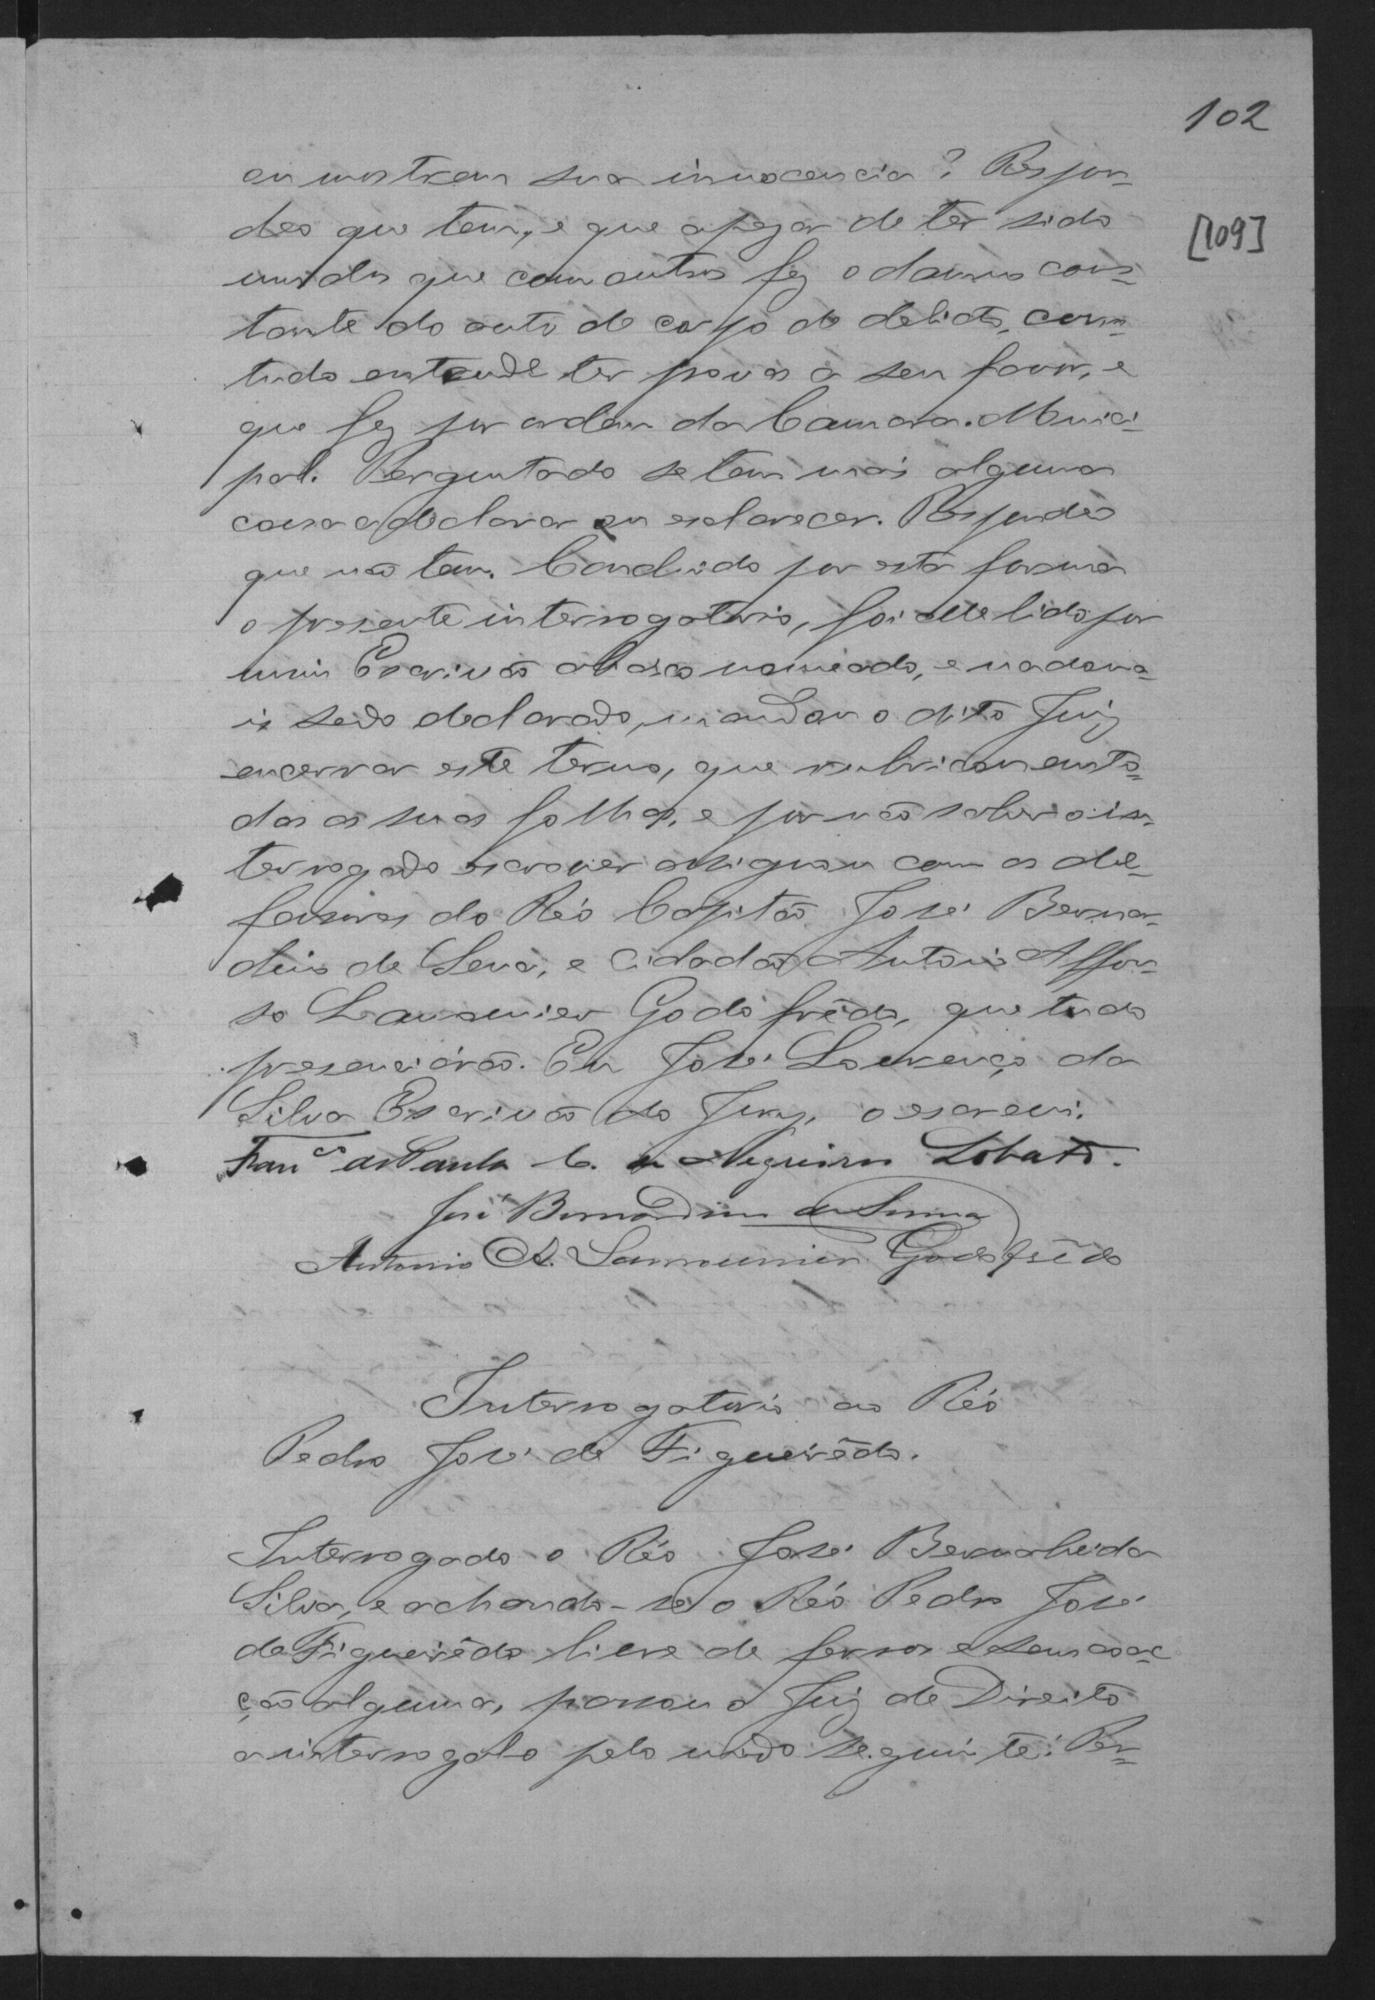 102
ou mostrem sua innocencia? Respon-
deo que tem, e que apezar de ter sido
um dos que com outros fez o damno cons-
tante do auto de corpo de delicto, com-
tudo entende ter provas á seu favor, e
que fez por ordem da Camara Munici-
pal. Perguntado se tem mais alguma
cousa a declarar ou esclarecer. Respondeo
que não tem. Concluido por esta forma
o presente interrogatorio, foi elle lido por
mim Escrivão abaixo nomeado, e nada ma-
is sendo declarado, mandou o dito Juiz
encerrar este termo, que rubricou em to-
das as suas folhas, e por não saber o in-
terrogado escrever assignou com os de-
fensores do Réo Capitão José Bernar-
dino de Sena, e Cidadão Antonio Affon-
so Lamounier Godofrêdo, que tudo
presenciárão. Eu José Lourenço da
Silva Escrivão do Jury, o escrevi.
Fran.co de Paula C. de Negreiros Lobato.
José Bernardino de Senna
Antonio A. Lamounier Godofrêdo
[109]
Interrogatorio ao Réo
Pedro José de Figueirêdo.
Interrogado o Réo José Bernabé da
Silva, e achando-se o Réo Pedro José
de Figueirêdo livre de ferros e sem coac-
ção alguma, passou o Juiz de Direito
a interrogalo pelo modo seguinte: Per-